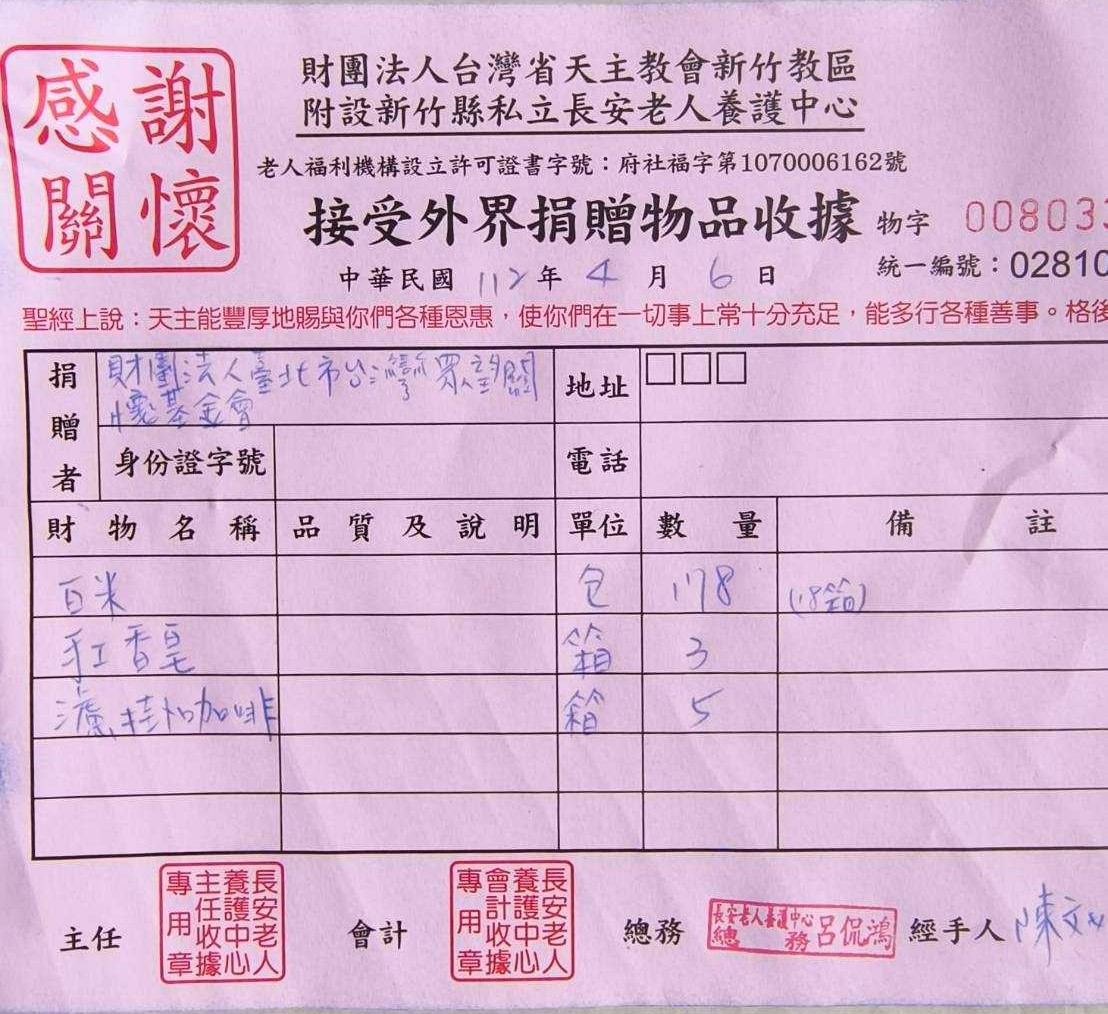 感謝
關懷
財團法人台灣省天主教會新竹教區
附設新竹縣私立長安老人養護中心
老人福利機構設立許可證書字號：府社福字第1070006162號
接受外界捐贈物品收據 物字 008033
中華民國 112 年 4 月 6 日 統一編號：02810
聖經上說：天主能豐厚地賜與你們各種恩惠，使你們在一切事上常十分充足，能多行各種善事。格後
捐贈者 財團法人臺北市台灣眾望關懷基金會 地址 □□□
身份證字號 電話
財物名稱 品質及說明 單位 數量 備註
白米 包 178 (18箱)
紅香皂 箱 3
濾掛咖啡 箱 5
主任 長安老人養護中心主任收據專用章 會計 長安老人養護中心會計收據專用章 總務 長安老人養護中心總務呂侃鴻 經手人 陳文